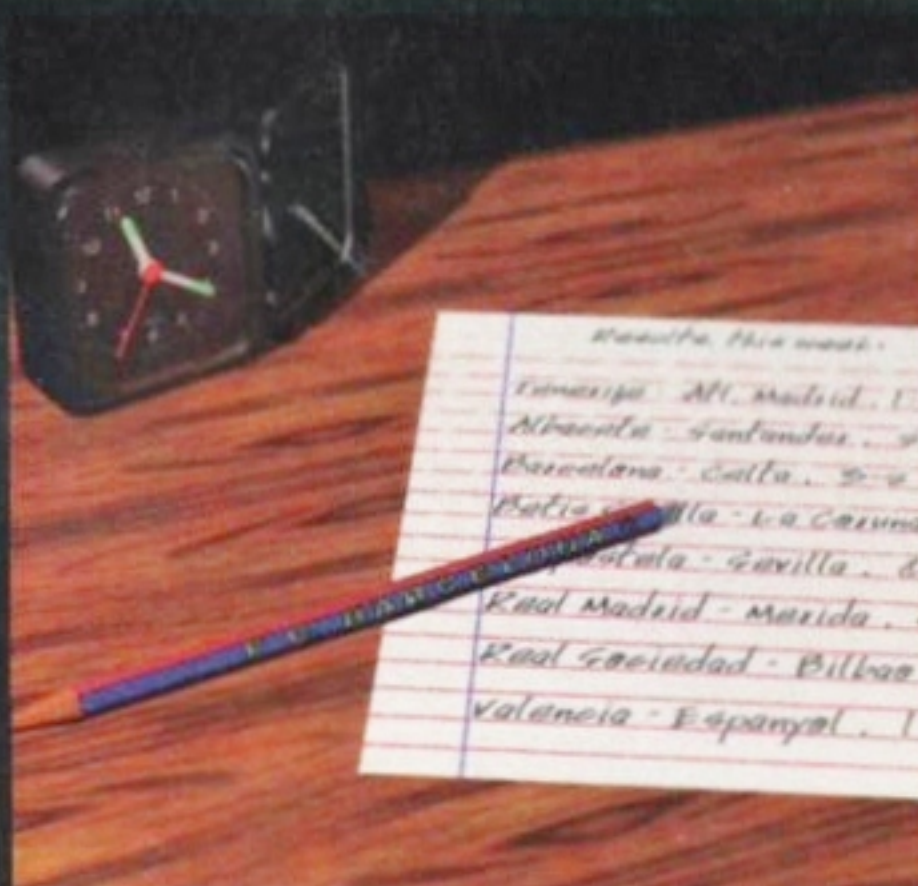 Results this week.
Tenerife - Atl. Madrid . 1
Albacete - Santander .
Barcelona - Celta .
Betis - La Corun
Sevilla .
Real Madrid - Merida .
Real Sociedad - Bilbao
Valencia - Espanyol . 1
F.C. BARCELONA